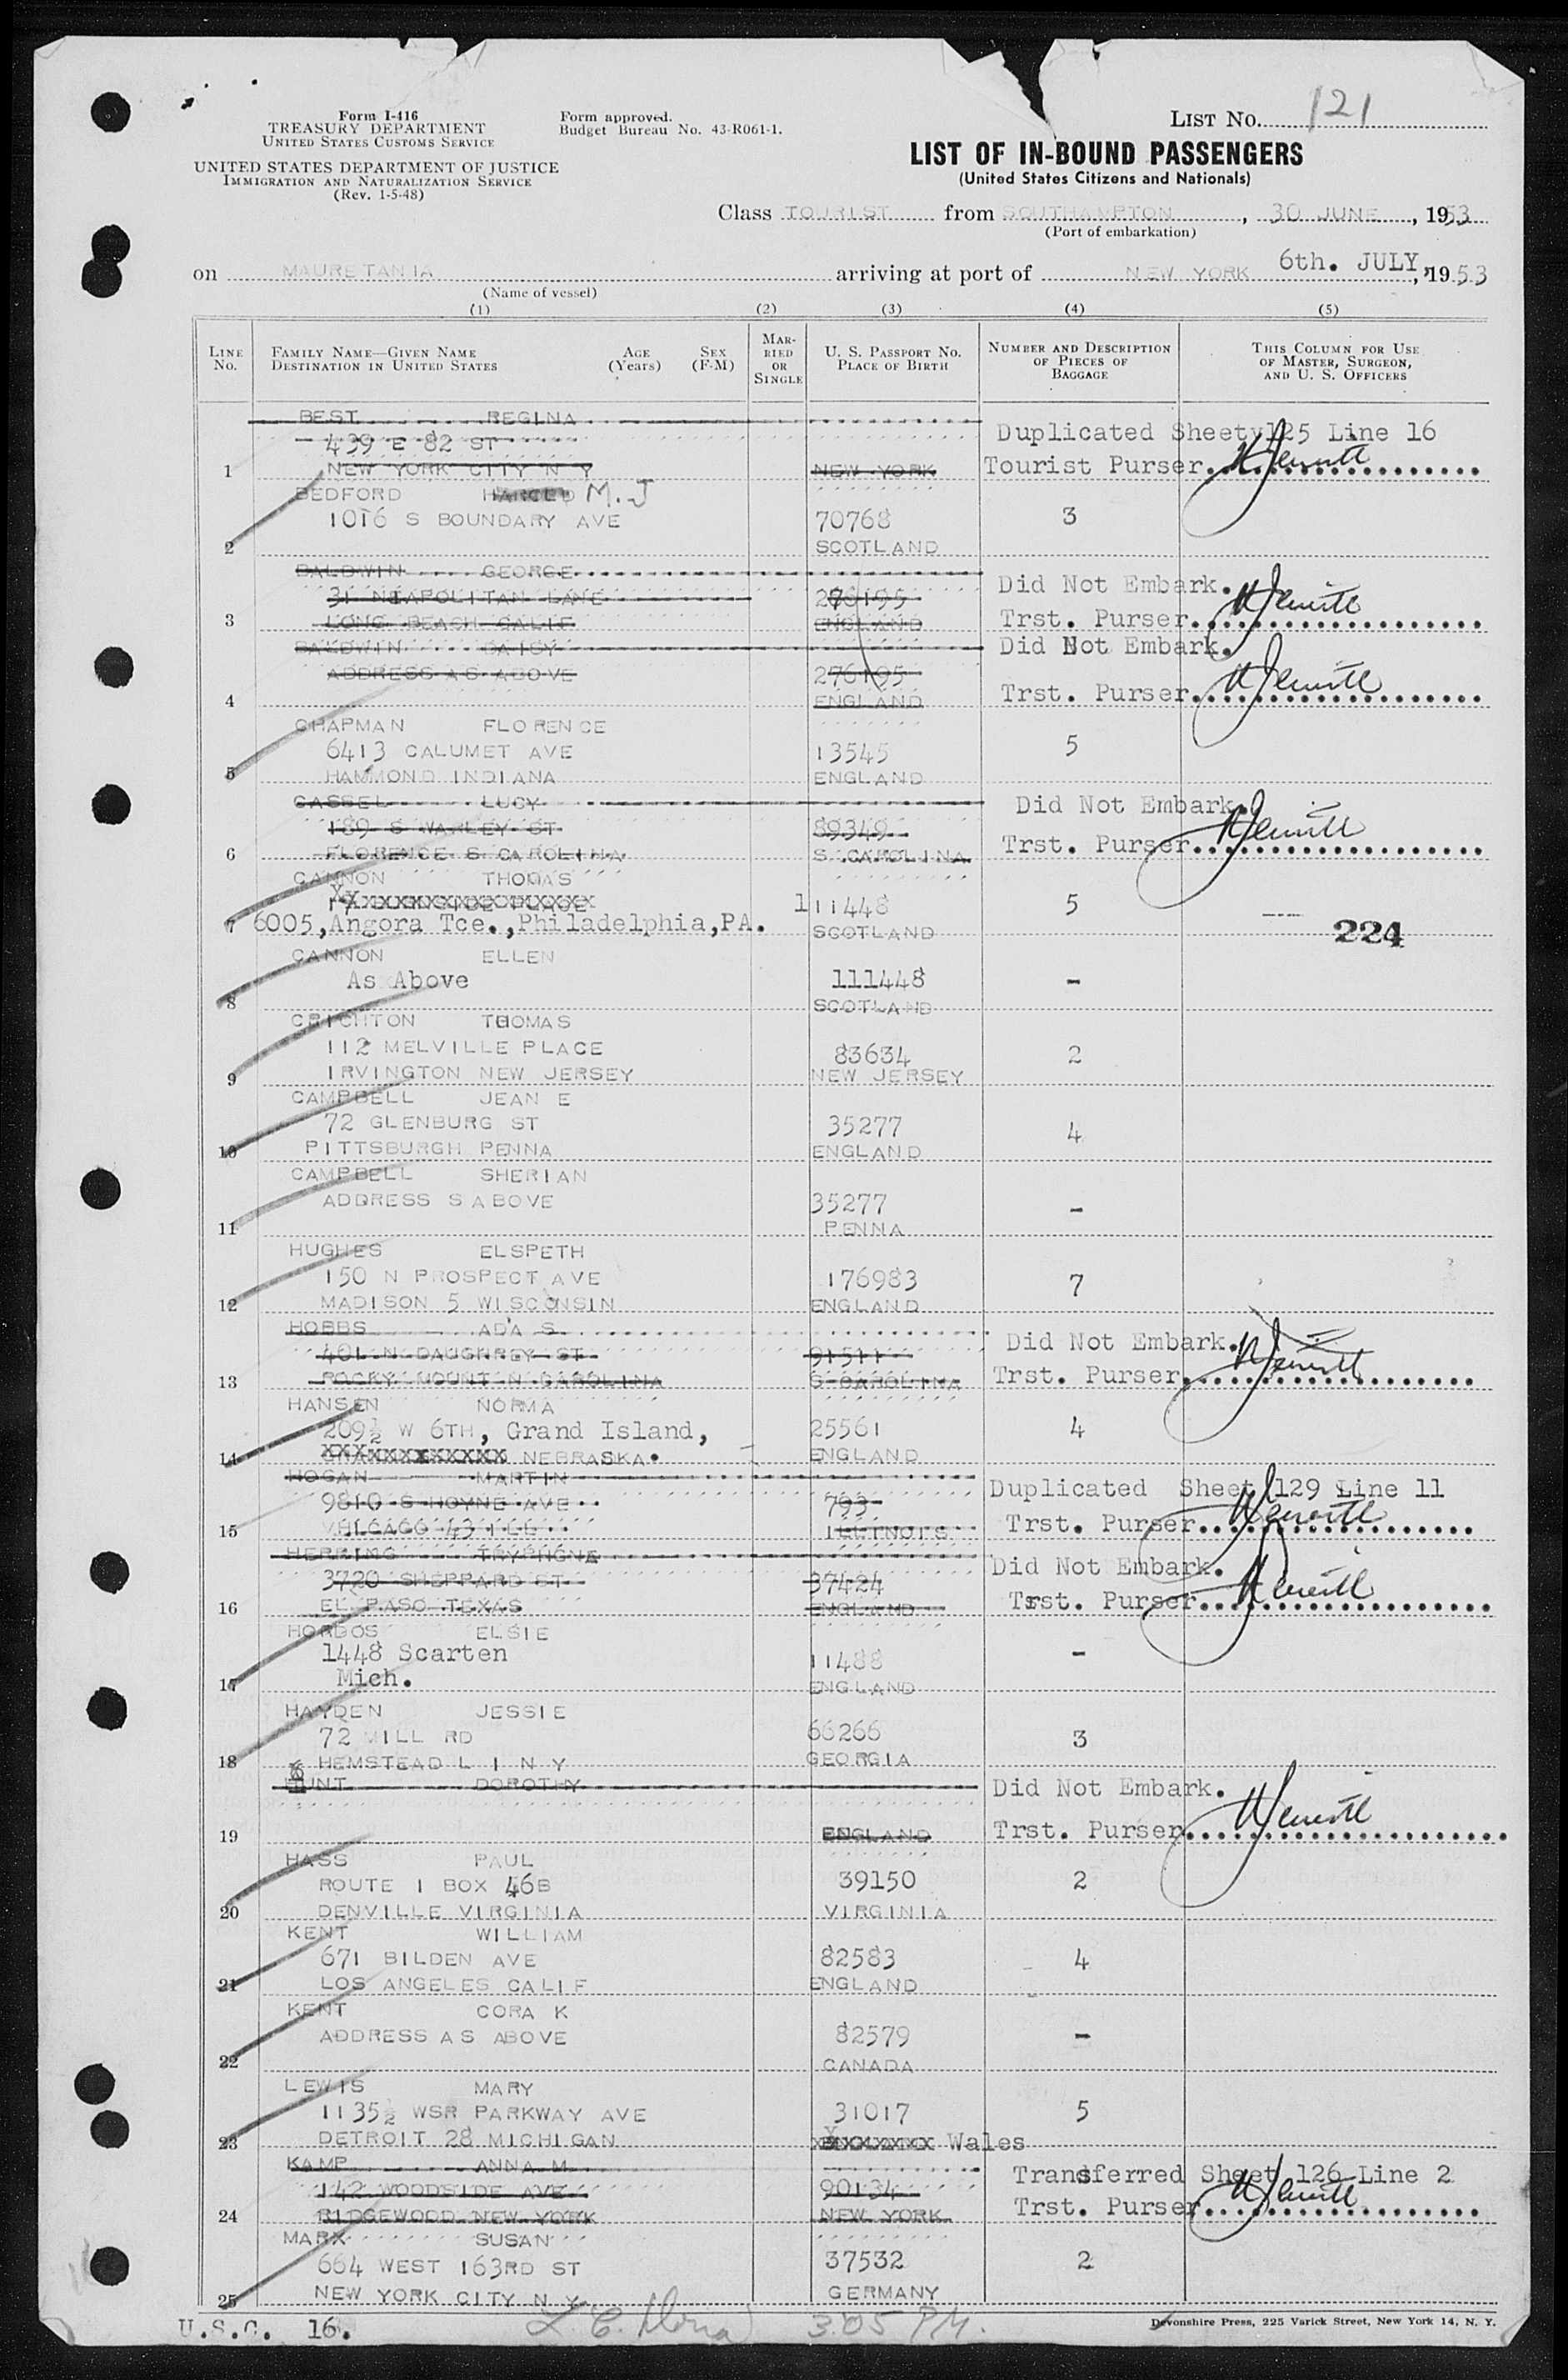 Form I-416
TREASURY DEPARTMENT
UNITED STATES CUSTOMS SERVICE
UNITED STATES DEPARTMENT OF JUSTICE
IMMIGRATION AND NATURALIZATION SERVICE
(Rev. 1-5-48)
Form approved.
Budget Bureau No. 43-R061-1.
LIST No. 121
LIST OF IN-BOUND PASSENGERS
(United States Citizens and Nationals)
Class TOURIST from SOUTHAMPTON, 30 JUNE, 1953
(Port of embarkation)
on MAURETANIA arriving at port of NEW YORK 6th. JULY, 1953
(Name of vessel)
(1) (2) (3) (4) (5)
LINE No. FAMILY NAME—GIVEN NAME DESTINATION IN UNITED STATES AGE (Years) SEX (F-M) MARRIED OR SINGLE U. S. PASSPORT No. PLACE OF BIRTH NUMBER AND DESCRIPTION OF PIECES OF BAGGAGE THIS COLUMN FOR USE OF MASTER, SURGEON, AND U. S. OFFICERS
BEST REGINA
439 E 82 ST Duplicated Sheet 125 Line 16
1 NEW YORK CITY N Y NEW YORK Tourist Purser
BEDFORD HAROLD M.J
1016 S BOUNDARY AVE 70768 3
2 SCOTLAND
BALDWIN GEORGE Did Not Embark.
31 NEAPOLITAN LANE 276195
3 LONG BEACH CALIF ENGLAND Trst. Purser
BALDWIN DAISY Did Not Embark.
ADDRESS AS ABOVE 276195
4 ENGLAND Trst. Purser
CHAPMAN FLORENCE
6413 CALUMET AVE 13545 5
5 HAMMOND INDIANA ENGLAND
CASSEL LUCY Did Not Embark.
189 S WARLEY ST 89349
6 FLORENCE S CAROLINA S CAROLINA Trst. Purser
CANNON THOMAS
111448 5
7 6005, Angora Tce., Philadelphia, PA. SCOTLAND 224
CANNON ELLEN
As Above 111448 -
8 SCOTLAND
CRICHTON THOMAS
112 MELVILLE PLACE 83634 2
9 IRVINGTON NEW JERSEY NEW JERSEY
CAMPBELL JEAN E
72 GLENBURG ST 35277 4
10 PITTSBURGH PENNA ENGLAND
CAMPBELL SHERIAN
ADDRESS S ABOVE 35277 -
11 PENNA
HUGHES ELSPETH
150 N PROSPECT AVE 176983 7
12 MADISON 5 WISCONSIN ENGLAND
HOBBS ADA S Did Not Embark.
401 N DAUGHREY ST 91511
13 ROCKY MOUNT N CAROLINA S CAROLINA Trst. Purser
HANSEN NORMA
209½ W 6TH, Grand Island, 25561 4
14 NEBRASKA. ENGLAND
HOGAN MARTIN Duplicated Sheet 129 Line 11
9810 S HOYNE AVE 793
15 43 ILL ILLINOIS Trst. Purser
HERRING TRYPHENE Did Not Embark.
3720 SHEPPARD ST 37424
16 EL PASO TEXAS ENGLAND Trst. Purser
HORDOS ELSIE
1448 Scarten 11488 -
17 Mich. ENGLAND
HAYDEN JESSIE
72 MILL RD 66266 3
18 HEMSTEAD L I N Y GEORGIA
HUNT DOROTHY Did Not Embark.
19 ENGLAND Trst. Purser
HASS PAUL
ROUTE 1 BOX 46B 39150 2
20 DENVILLE VIRGINIA VIRGINIA
KENT WILLIAM
671 BILDEN AVE 82583 4
21 LOS ANGELES CALIF ENGLAND
KENT CORA K
ADDRESS AS ABOVE 82579 -
22 CANADA
LEWIS MARY
1135½ WSR PARKWAY AVE 31017 5
23 DETROIT 28 MICHIGAN Wales
KAMP ANNA M Transferred Sheet 126 Line 2
142 WOODSIDE AVE 90134
24 RIDGEWOOD NEW YORK NEW YORK Trst. Purser
MARX SUSAN
664 WEST 163RD ST 37532 2
25 NEW YORK CITY N Y GERMANY
U.S.C. 16. 3.05 P.M. Devonshire Press, 225 Varick Street, New York 14, N. Y.